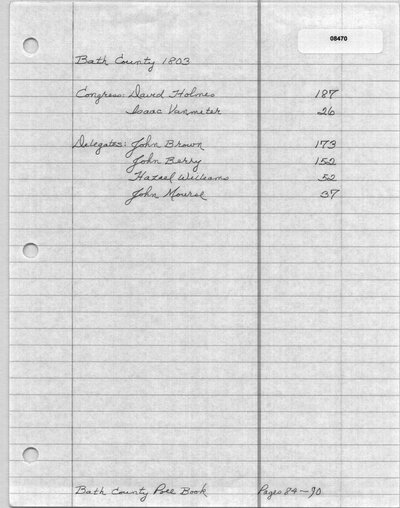 08470
Bath County 1803
Congress: David Holmes 187
Isaac Vanmeter 26
Delegates: John Brown 173
John Berry 152
Hazael Williams 52
John 37
Bath County Poll Book Pages 84-90